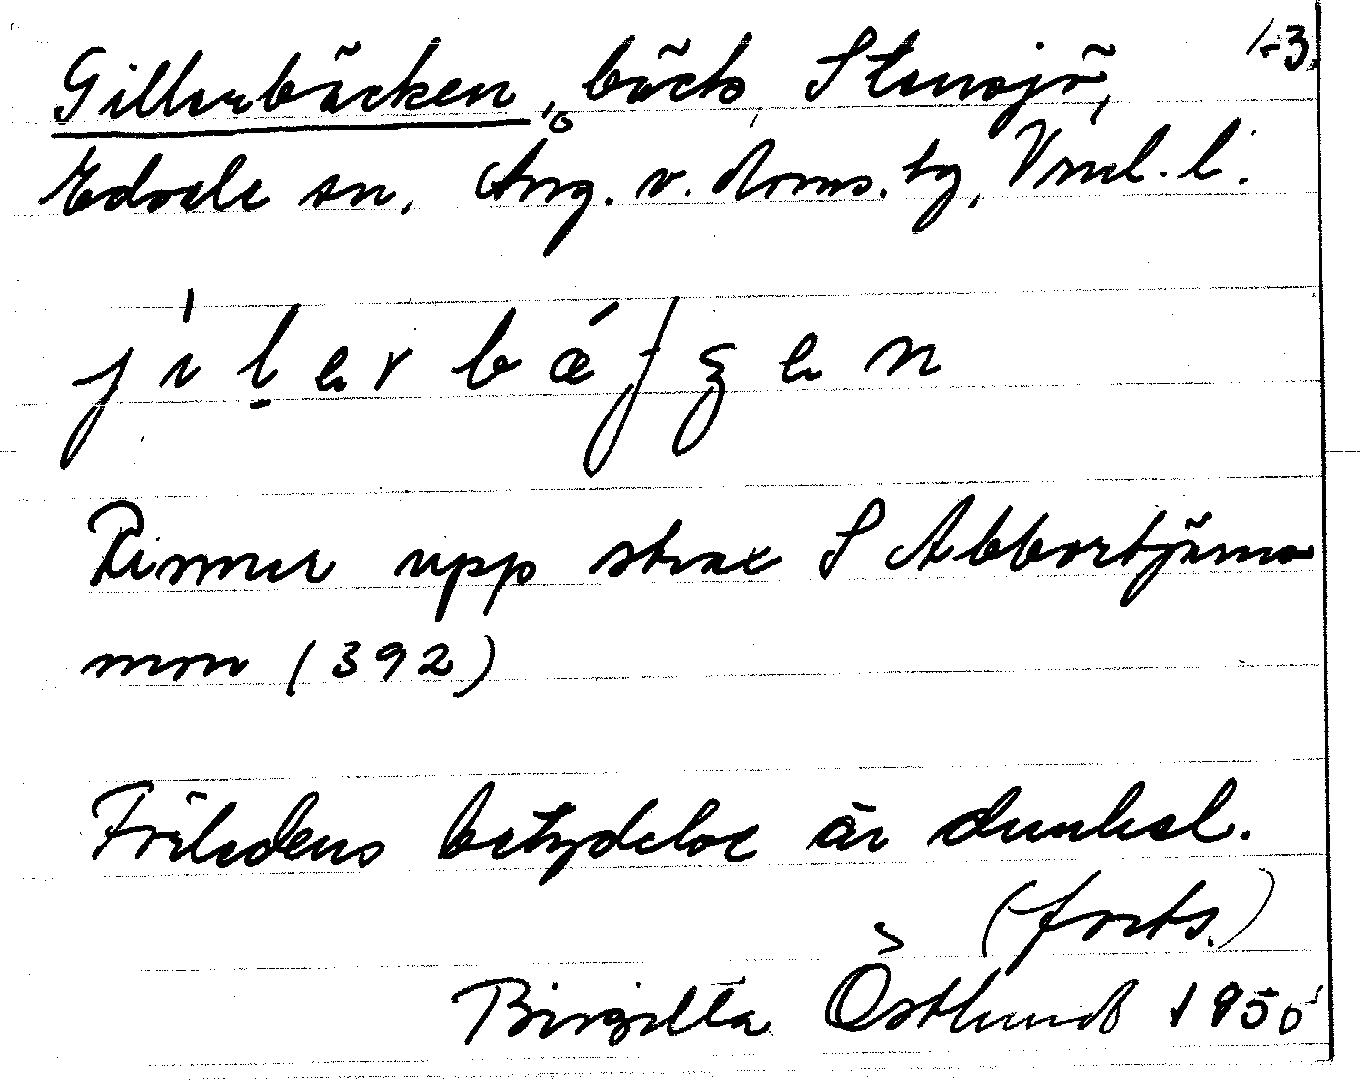 1-3.
Gillerbäcken, bäck, Stensjö,
Edsele sn, Ång. v. doms. tg, Vnl. l.
jílerbǽʃʒen
Rinner upp strax S Abbortjärns-
mon (392)
Förledens betydelse är dunkel.
(forts.)
Birgitta Östlund 1950